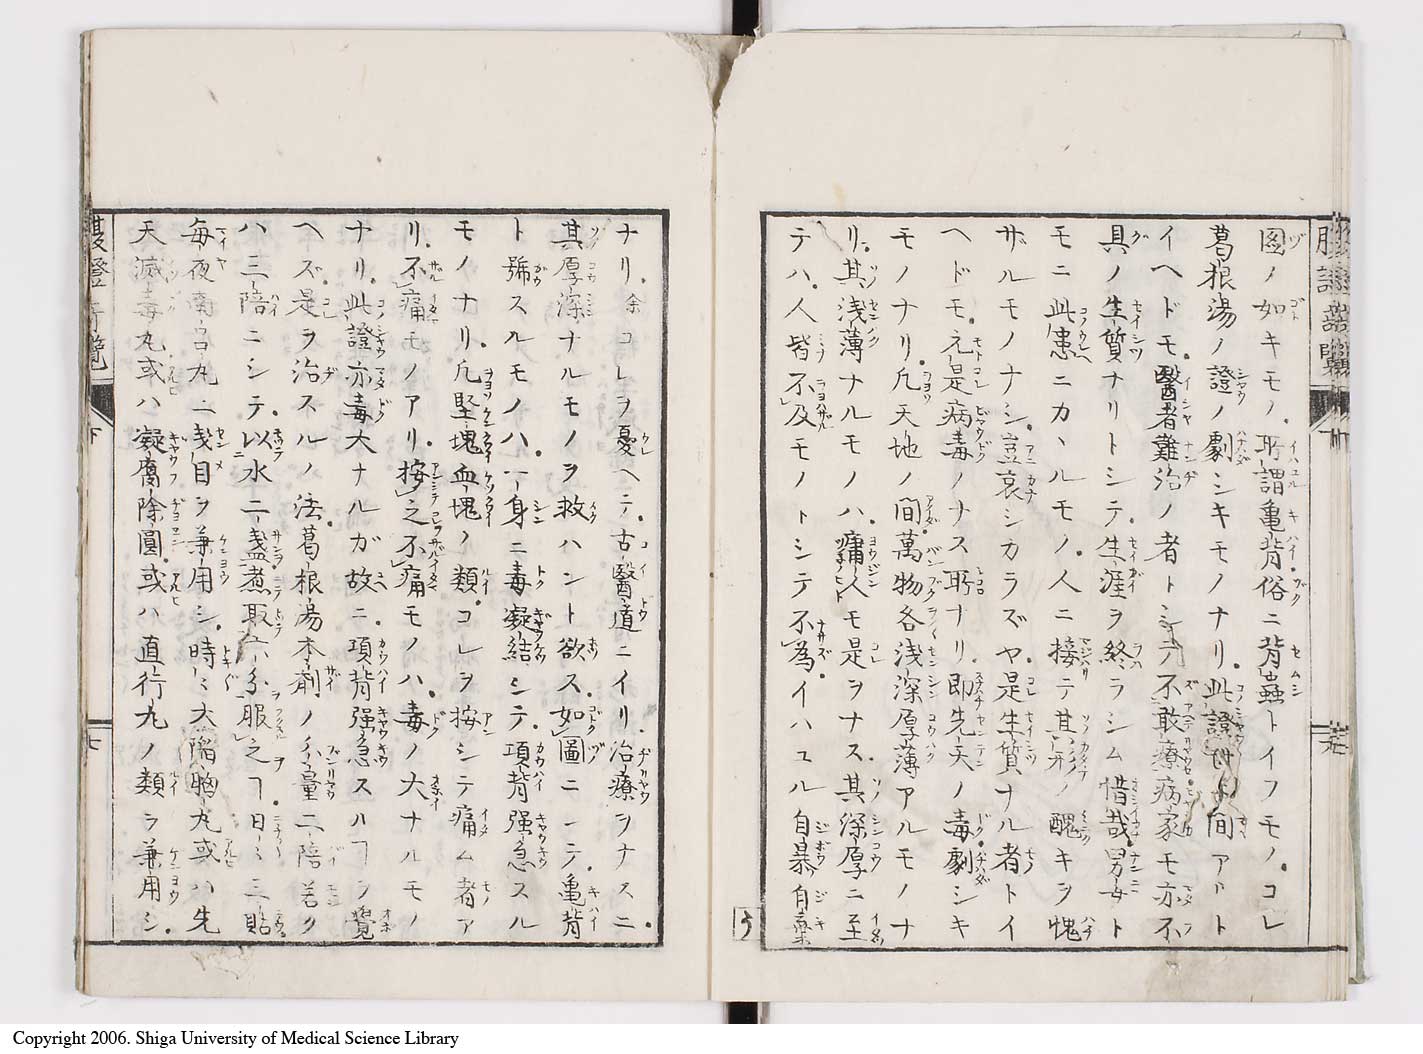 圖ノ如キモノ。所謂亀背俗ニ背蟲トイフモノ。コレ
葛根湯ノ證ノ劇シキモノナリ。此證 間アレト
イヘドモ。醫者難治ノ者トシテ不敢療病家モ亦不
具ノ生質ナリトシテ。生涯ヲ終ラシム惜哉。男女ト
モニ此患ニカヽルモノ。人ニ接テ其形ノ醜キヲ愧
ザルモノナシ。豈哀シカラズヤ是生質ナル者トイ
ヘドモ。元是病毒ノナス所ナリ。即先天ノ毒劇シキ
モノナリ。凡天地ノ間。萬物各浅深厚薄アルモノナ
リ。其浅薄ナルモノハ。庸人モ是ヲナス。其深厚ニ至
テハ。人皆不及モノトシテ不為。イハユル自暴自棄
ナリ。余コレヲ憂ヘテ。古醫道ニイリ。治療ヲナスニ。
其厚深ナルモノヲ救ハント欲ス。如圖ニシテ。亀背
ト號スルモノハ。一身ニ毒凝結シテ。項背强急スル
モノナリ。凡堅塊血塊ノ類。コレヲ按シテ痛ム者ア
リ。不痛モノアリ。按之不痛モノハ。毒ノ大ナルモノ
ナリ。此證亦毒大ナルガ故ニ。項背强急スルヿヲ覺
ヘズ。是ヲ治スルノ法。葛根湯本劑ノ分量二陪若ク
ハ三陪ニシテ。以水二盞煮取六分。服之ヿ日ニ三貼。
毎夜南呂丸二 目ヲ兼用シ。時々大陷胸丸或ハ先
天滅毒丸或ハ凝腐除圓。或ハ直行丸ノ類ヲ兼用シ。
腹證奇覽
下
七